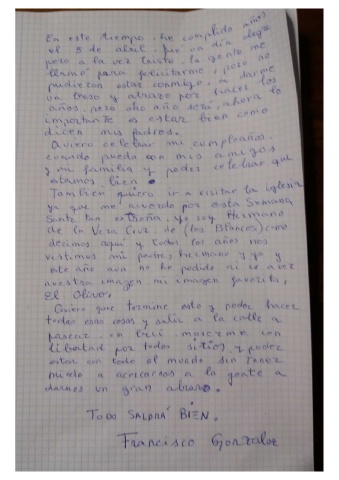 En este tiempo, he cumplido años
el 5 de abril, fue un día alegre
pero a la vez triste, la gente me
llamó para felicitarme, pero no
pudieron estar conmigo, a darme
un beso y abrazo por hacer los
años, pero otro año será, ahora lo
importante es estar bien como
dicen mis padres.
Quiero celebrar mi cumpleaños
cuando pueda con mis amigos
y mi familia y poder celebrar que
estamos bien.
También quiero ir a visitar la iglesia
ya que me acuerdo por esta Semana
Santa tan extraña, yo soy Hermano
de la Vera Cruz, de (los Blancos) como
decimos aquí y todos los años nos
vestimos mi padre, hermano y yo y
este año aun no he podido ni ir a ver
nuestra imagen mi imagen favorita,
El Olivo.
Quiero que termine esto y poder hacer
todas esas cosas y salir a la calle a
pasear en bici, moverme con
libertad por todos sitios y poder
estar con todo el mundo sin tener
miedo a acercarnos a la gente a
darnos un gran abrazo.
TODO SALDRÁ BIEN.
Francisco Gonzalez